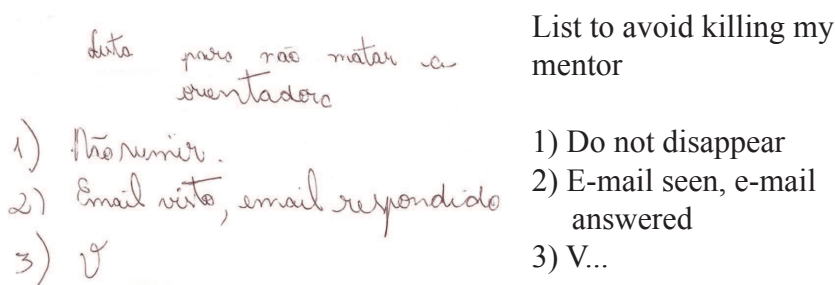 Lista para não matar a
orientadora
1) Não sumir.
2) Email visto, email respondido
3) V
List to avoid killing my
mentor
1) Do not disappear
2) E-mail seen, e-mail
answered
3) V...